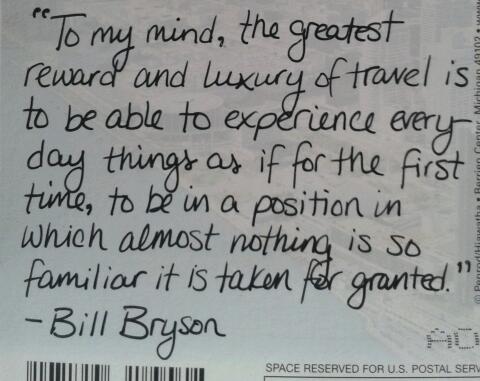 "To my mind, the greatest
reward and luxury of travel is
to be able to experience every-
day things as if for the first
time, to be in a position in
which almost nothing is so
familiar it is taken for granted."
- Bill Bryson
SPACE RESERVED FOR U.S. POSTAL SERV